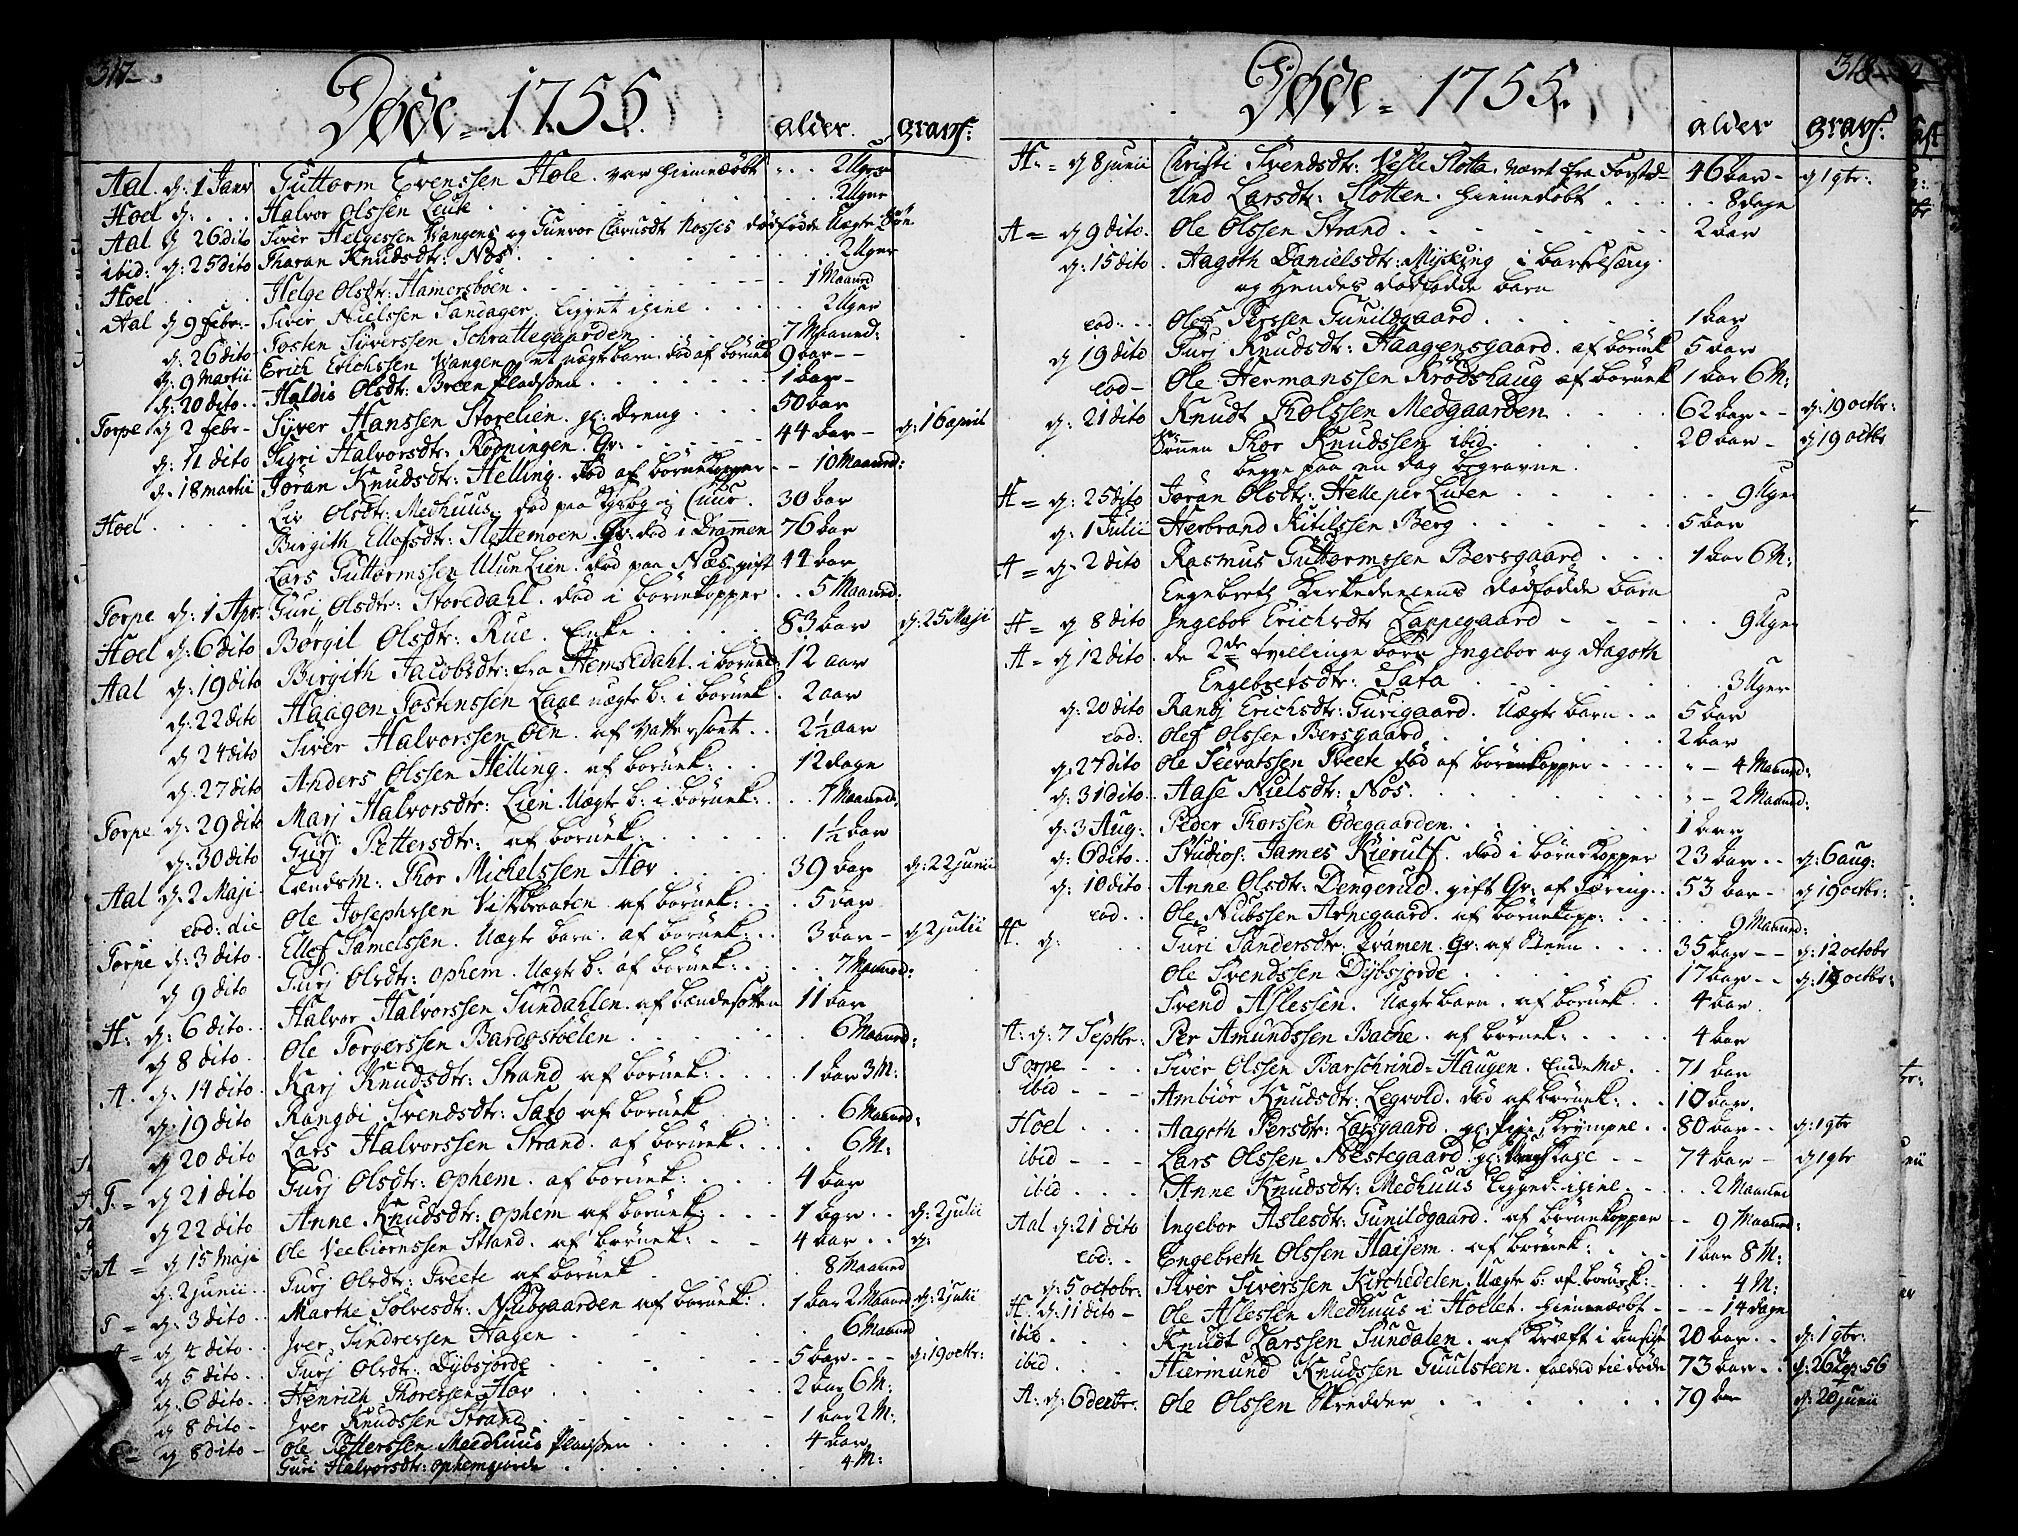 317
Døde 1755.
alder. gravf:
Aal. d: 1 Janv Guttorm Evenssen Hole. var hiemedøbt 2 Uger
Hoel d: . . . Halvor Olssen Leute . . . 2 Uger
Aal d 26 dito Siver Helgessen Wangens og Gunvor Nosses dødfødde Uægte Søn
ibid: d: 25 dito Tharan Knudsdtr: Nos . . . 2 Uger
Hoel . . . Helge Olsdtr: Hamersbøen . . . 1 Maaned
Aal d 9 febr: Siver Nielssen Sandager. ligget ihiel . . . 2 Uger
d: 26 dito Tosten Syverssen Schrattegaarden . . . 7 Maaned:
d: 9 Martii Erich Erichssen Wangen, et uægte barn. død af børnek 9 aar
d: 20 dito Haldis Olsdtr: Breen Pladsen . . . 1 aar
Torpe d 2 febr Syver Hanssen Storelien. gl: dreng . . . 50 aar d: 16 april
d: 11 dito Sigri Halvorsdtr: Rodningen. Gr. . . . 44 aar
d: 18 martii Jøran Knudsdtr: Helling. død af børnekopper 10 Maaned:
Liv Olsdtr: Medhuus. død paa og Cuur. 30 aar
Hoel . . . Birgith Ellefsdtr: Slettemoen. Gr: død i Drammen 76 aar
Lars Guttormssen Ulun Lien. død paa Næs gift 44 aar
Guri Olsdtr: Storedahl. død i børnekopper . . 5 Maaned:
Torpe d: 1 Apr. Børgil Olsdtr: Rue. Enke . . . 83 aar d: 25 Maji
Hoel d: 6 dito Birgith Jacobsdtr: fra Hemsedahl. i børnek: 12 aar
Aal d: 19 dito Haagen Tostenssen Laae uægte b: i børnek. 2 aar
d: 22 dito Siver Halvorssen Øen. af Vattersoet . . 2½ aar
d 24 dito Anders Olssen Helling. af børnek: . . 12 dage
d. 27 dito Marj Halvorsdtr: Lien. Uægte b: i børnek: . . 7 Maaned:
Torpe. d: 29 dito Gurj Pettersdtr: af børnek: . . . 1½ aar
d: 30 dito Lændsm: Thor Michelssen Hov . . . 39 aar d: 22 junii
Aal d: 2 Maji Ole Josephssen Viskbraaten af børnek: . . 5 aar
eod: die Ellef Samelssen. Uægte barn. af børnek: . . 3 aar d 2 julii
Torpe d: 3 dito Gurj Olsdtr: Ophem. Uægte b: af børnek: . . 7 Maaned:
d 9 dito Halvor Halvorssen Sundahlen. af bændesotten 11 aar
H: d: 6 dito Ole Torgerssen Bardostølen . . . 6 Maaned:
d 8 dito Karj Knudsdtr: Strand af børnek: . . . 1 aar 3 M:
A. d: 14 dito Rangdi Svendsdtr: Sato af børnek . . . 6 Maaned:
d: 19 dito Lars Halvorssen Strand. af børnek: . . . 6 M:
d 20 dito Gurj Olsdtr: Ophem. af børnek: . . . 4 aar
T. = d 21 dito Anne Knudsdtr: Ophem af børnek: . . . 1 aar . . d: 2 julii
d 22 dito Ole Veebiornssen Strand. af børnek: . . 4 aar . . d:
A = d 15 Maji Gurj Olsdtr: Treete af børnek . . . 8 Maaned
d. 2 junii Marthe Solvesdtr: Nubgaarden af børnek: . 1 aar 2 Maaned d: 2 julii
T = d: 3 dito Iver Sindressen Hagen . . . 6 Maaned
d 4 dito Gurj Olsdtr: Dybsjorde . . . 5 aar . . . d: 19 octbr:
d 5 dito Henrich Thoressen Hov . . . 2 aar 6 M:
d. 6 dito Iver Knudssen Strand . . . 1 aar 2 M:
d 8 dito Ole Petterssen Meedhuus Pladsen . . . 4 aar
d 8 dito Guri Halvorsdtr: Ophemgiorde . . . 4 M:
318
Døde = 1755.
alder gravf:
H. = d 8 junii Christi Svendsdtr: Vesle Slotta. været fra Forstand 46 aar d 1 9br:
Und Larsdtr: Slotten. hiemedøbt . . . 8 dage
A = d 9 dito. Ole Olssen Strand . . . 2 aar
d: 15 dito. Aagoth Danielsdtr: Mycking i barselsæng.
og hendes dødfødde barn
eod: . . Olef Perssen Gunildgaard . . . 1 aar
d 19 dito Gurj Knudsdtr: Haagensgaard. af børnek 5 aar
eod Ole Hermanssen Krødshaug af børnek 1 aar 6 M:
d: 21 dito Knudt Tholssen Medgaarden . . . 62 aar d: 19 octbr:
Sønnen Thor Knudssen ibid . . . 20 aar d 19 octbr
begge paa en dag begravne.
H = d: 25 dito Jøran Olsdtr: Helle per Luten . . . 9 Uger
d: 1 Julii Herbrand Kitilssen Berg . . . 5 aar
A = d. 2 dito Rasmus Guttormssen Bersgaard . . . 1 aar 6 M:
Engebreth Kirkedelens dødfødde barn
H = d 8 dito Ingebor Erichsdtr Lappegaard . . . 9 Uger
A = d 12 dito. de 2de tvillinge børn Ingebor og Aagoth
Engebretsdtr: Sata . . . 3 Uger
d: 20 dito Randj Erichsdtr: Gurigaard. Uægte barn . . 5 aar
eod: Olef Olssen Bersgaard . . . 2 aar
d: 27 dito Ole Seevatssen Treete død af børnekopper . . . 4 Maaned:
d: 31 dito. Aase Nielsdtr: Nos . . . 2 Maaned:
d: 3 Aug: Peder Thorssen Ødegaarden . . . 1 aar
d: 6 dito. Studios: James Kierulf. død i børnekopper 23 aar . . d: 6 aug:
d: 10 dito Anne Olsdtr: Dengerud. gift Gr: af Tæring . . 53 aar d 19 octbr:
eod . . Ole Nubssen Arnegaard. af børnekopp: . . . 9 Maaned:
H. d: . . . Guri Sandersdtr: Gr: af Steen . . . 35 aar d: 12 octobr
Ole Svendssen Dybsjorde . . . 17 aar d: 19 octbr:
Svend Aslessen. Uægte barn. af børnek . . 4 aar
A: d: 7 Septbr: Per Amundssen Bache. af børnek: . . . 4 aar
Torpe . . . Siver Olssen Barschrind-Haugen. Enkemd . . 71 aar
ibid . . . Ambiør Knudsdtr: Legvold. død af børnek: . . 10 aar
Hoel . . . Aagoth Persdtr: Larsgaard. gl: pige, Krympel . . 80 aar . . d: 1 9br
ibid . . . Lars Olssen Nestegaard. gl: . . 74 aar d 1 9br
ibid . . . Anne Knudsdtr: Medhuus ligged ihiel . . . 2 Maaned
Aal d: 21 dito Ingebor Aslesdtr: Gunildgaard. af børnekopper 9 Maaned:
eod: . Engebreth Olssen Haisem. af børnek: . . . 1 aar 8 M:
d: 5 octobr: Siver Siverssen Kirchedelen. Uægte b: af børnek: . . 4 M:
H: d: 11 dito Ole Aslessen Medhuus i Hoelet. hiemmedøbt . . . 14 dage
ibid. . . . Knudt Larssen Sundalen. af Kræft i ansigt 20 aar . . d: 1 9br:
ibid . . . Hiermund Knudssen Guulsteen. falded til døde 73 aar d: 26 56
A: d: 6 decbr. Ole Olssen Skredder . . . 79 aar d: 20 junii